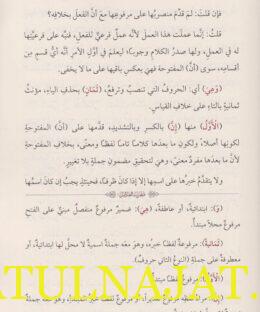 فإن قلتَ: لمَ قدّم منصوبُها على مرفوعِها مع أنّ الفعلَ بخلافِه؟
قلتُ: إنما عملَت هذا العملَ لأنّه عملٌ فرعيٌّ للفعلِ، فنبّه على فرعيّتِها
له في العملِ، ولها صدرُ الكلامِ وجوباً؛ ليعلمَ في أوّلِ الأمرِ أنّه أيُّ قسمٍ مِن
أقسامِه، سوى (أنّ) المفتوحةِ فهي بعكسِ باقيها على ما لا يخفى.
(وَهِيَ) أي: الحروفُ التي تنصبُ وترفعُ، (ثَمَانٍ) بحذفِ الياءِ، مؤنثُ
ثمانيةٍ بالتاءِ على خلافِ القياسِ.
(الأَوَّلُ) منها (إِنَّ) بالكسرِ وبالتشديدِ، قدّمها على (أنّ) المفتوحةِ
لكونِها أصلاً، ولكونِ ما بعدَها كلاماً تامّاً لفظاً ومعنًى، بخلافِ المفتوحةِ
لأنّ ما بعدَها مفردٌ معنًى، وهي لتحقيقِ مضمونِ جملةٍ بلا تغييرٍ.
ولا يتقدّمُ خبرُها على اسمِها إلا إذا كانَ ظرفاً، فحينئذٍ يجبُ إن كانَ اسمُها
(وَ): ابتدائيةٌ، أو عاطفةٌ، (هِيَ): ضميرٌ مرفوعٌ منفصلٌ مبنيٌّ على الفتحِ
مرفوعٌ محلاً مبتدأٌ.
(ثَمَانِيَةٌ): مرفوعةٌ لفظاً خبرُه، وهو معَه جملةٌ اسميةٌ لا محلَّ لها ابتدائيةٌ، أو
معطوفةٌ على جملةِ (النوعُ الثاني حروفٌ).
(الأَوَّلُ): مرفوعٌ لفظاً مبتدأٌ.
ATULNAJAT.